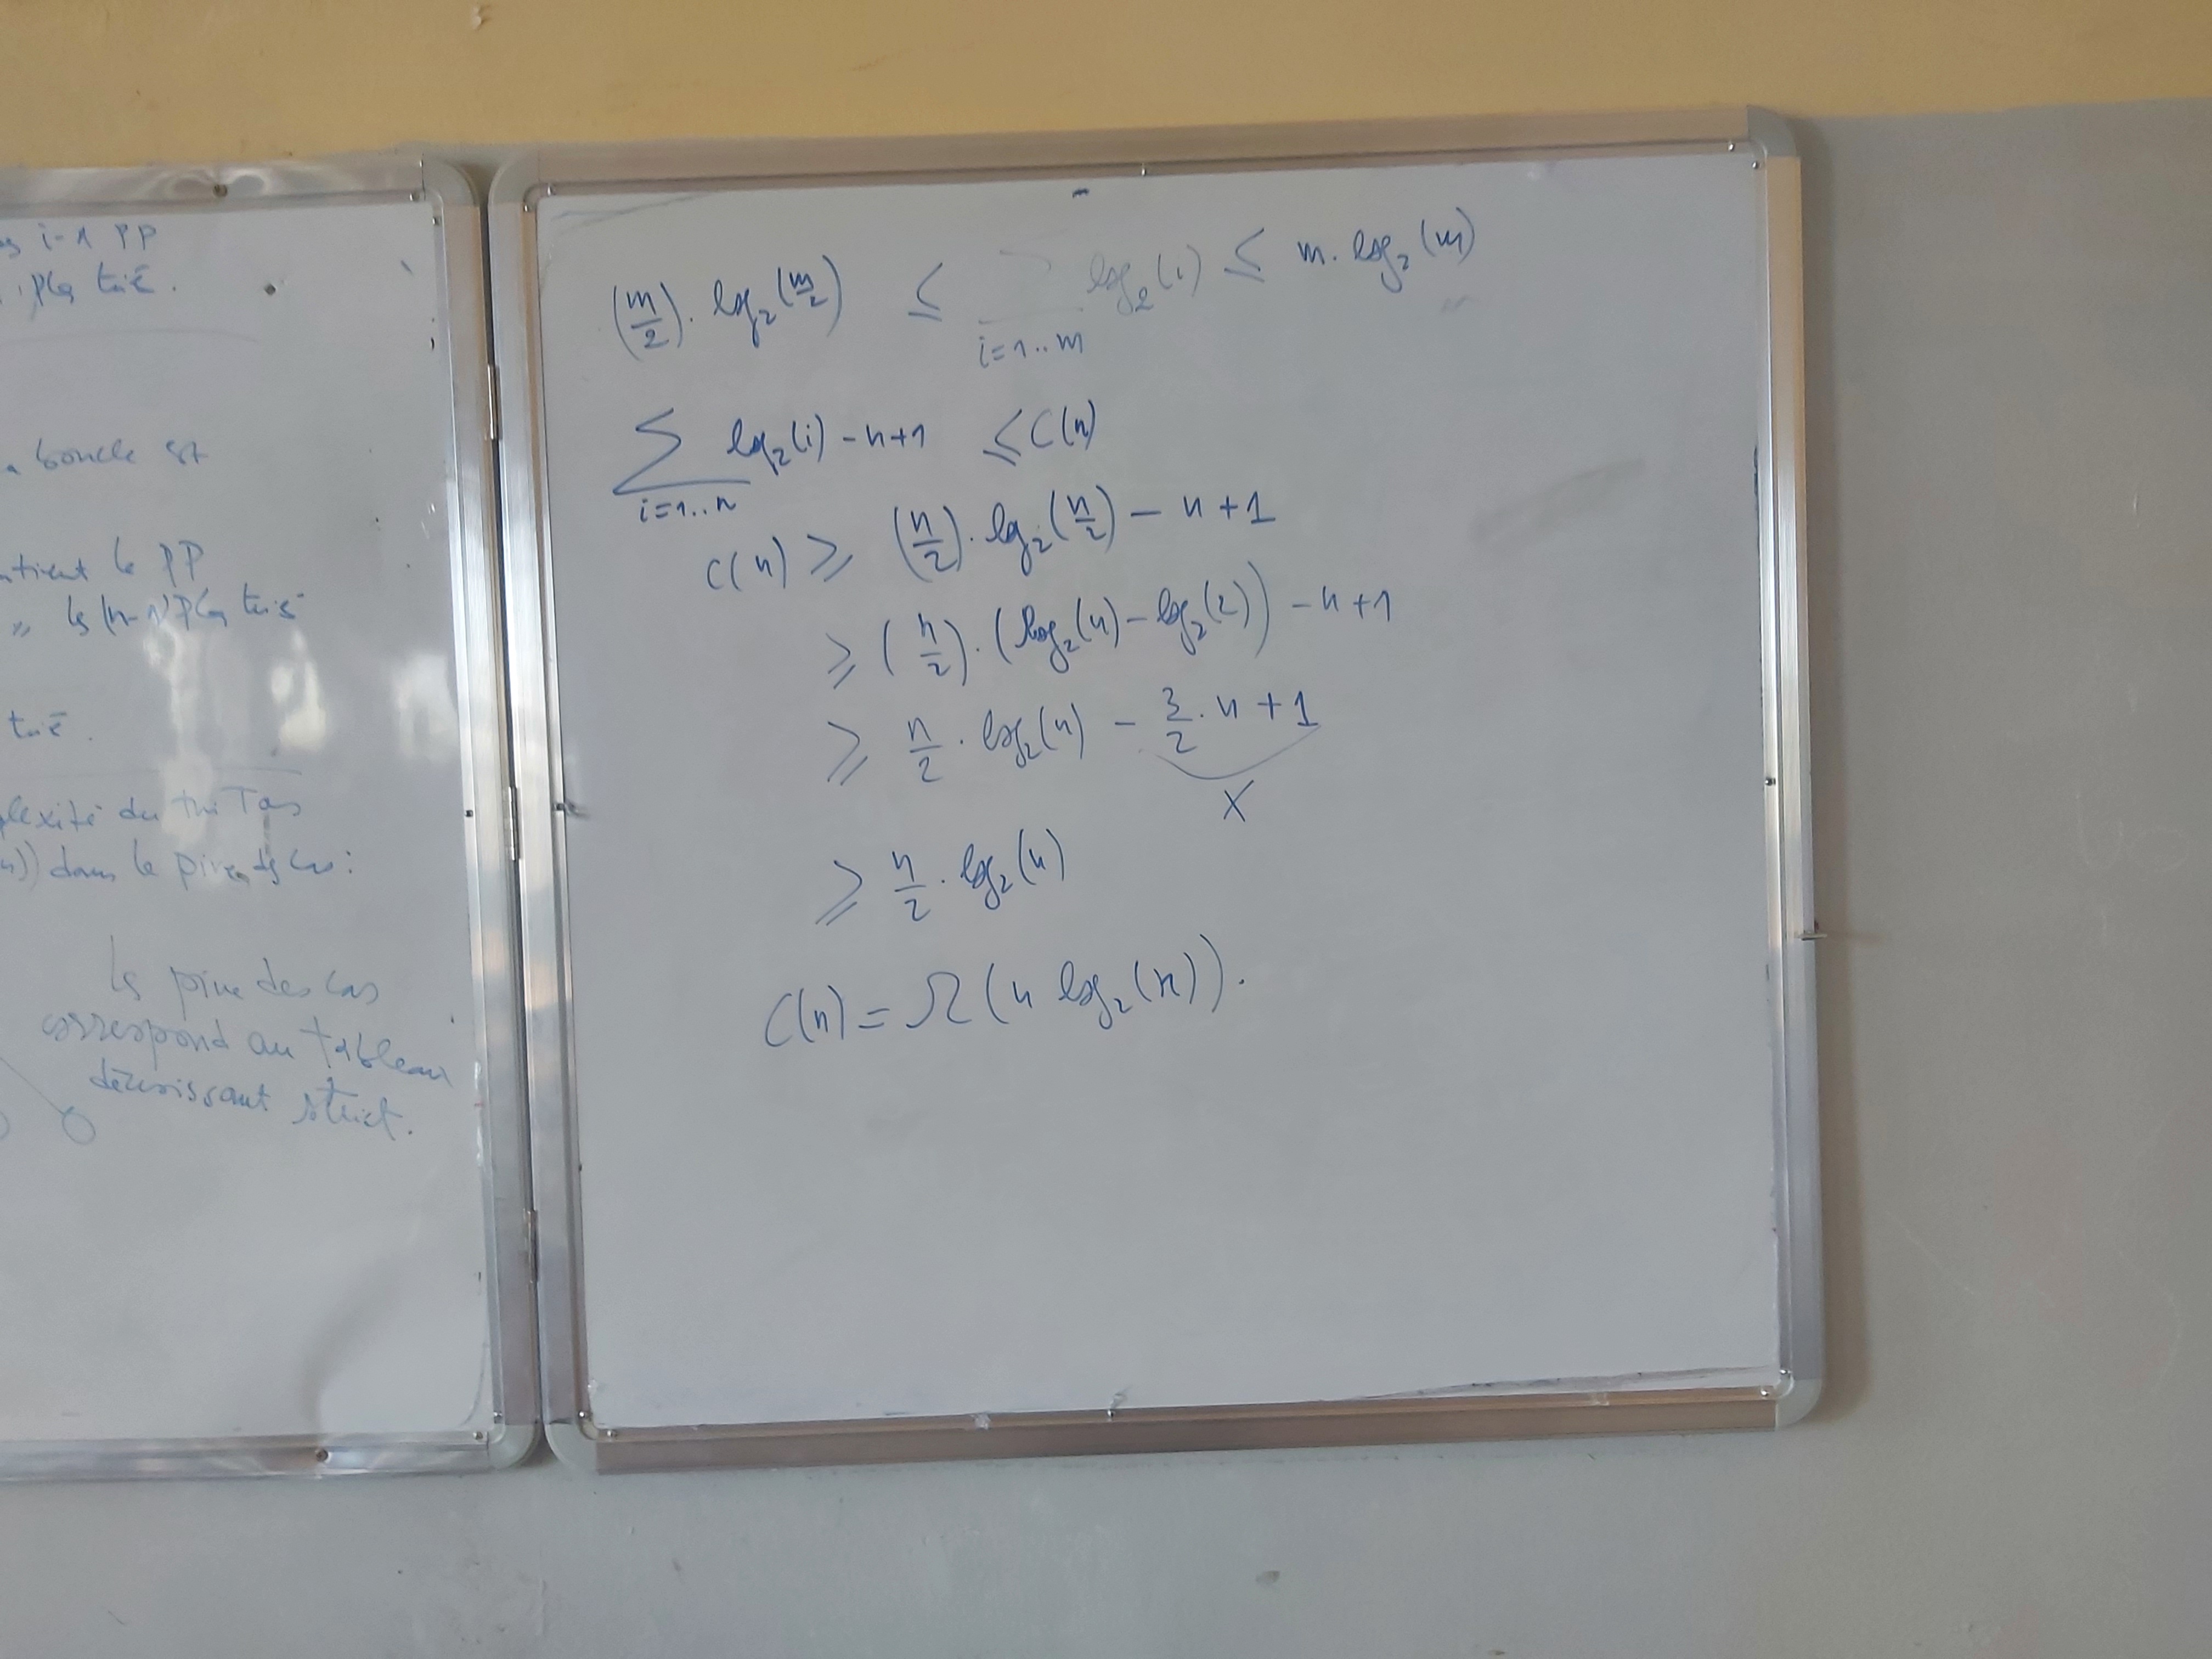 i-1 PP
plg trié.
boucle st
le PP
" ls (n-1) plg triés
trié.
du tri Tas
dans le pire des cas :
le pire des cas
correspond au tableau
décroissant strict.
(m/2) . log₂(m/2) ≤ ∑ i=1..m log₂(i) ≤ m . log₂(m)
∑ i=1..n log₂(i) - n+1 ≤ C(n)
C(n) ≥ (n/2) . log₂(n/2) - n + 1
≥ (n/2) . (log₂(n) - log₂(2)) - n+1
≥ n/2 . log₂(n) - 3/2 . n + 1
X
≥ n/2 . log₂(n)
C(n) = Ω(n log₂(n)).